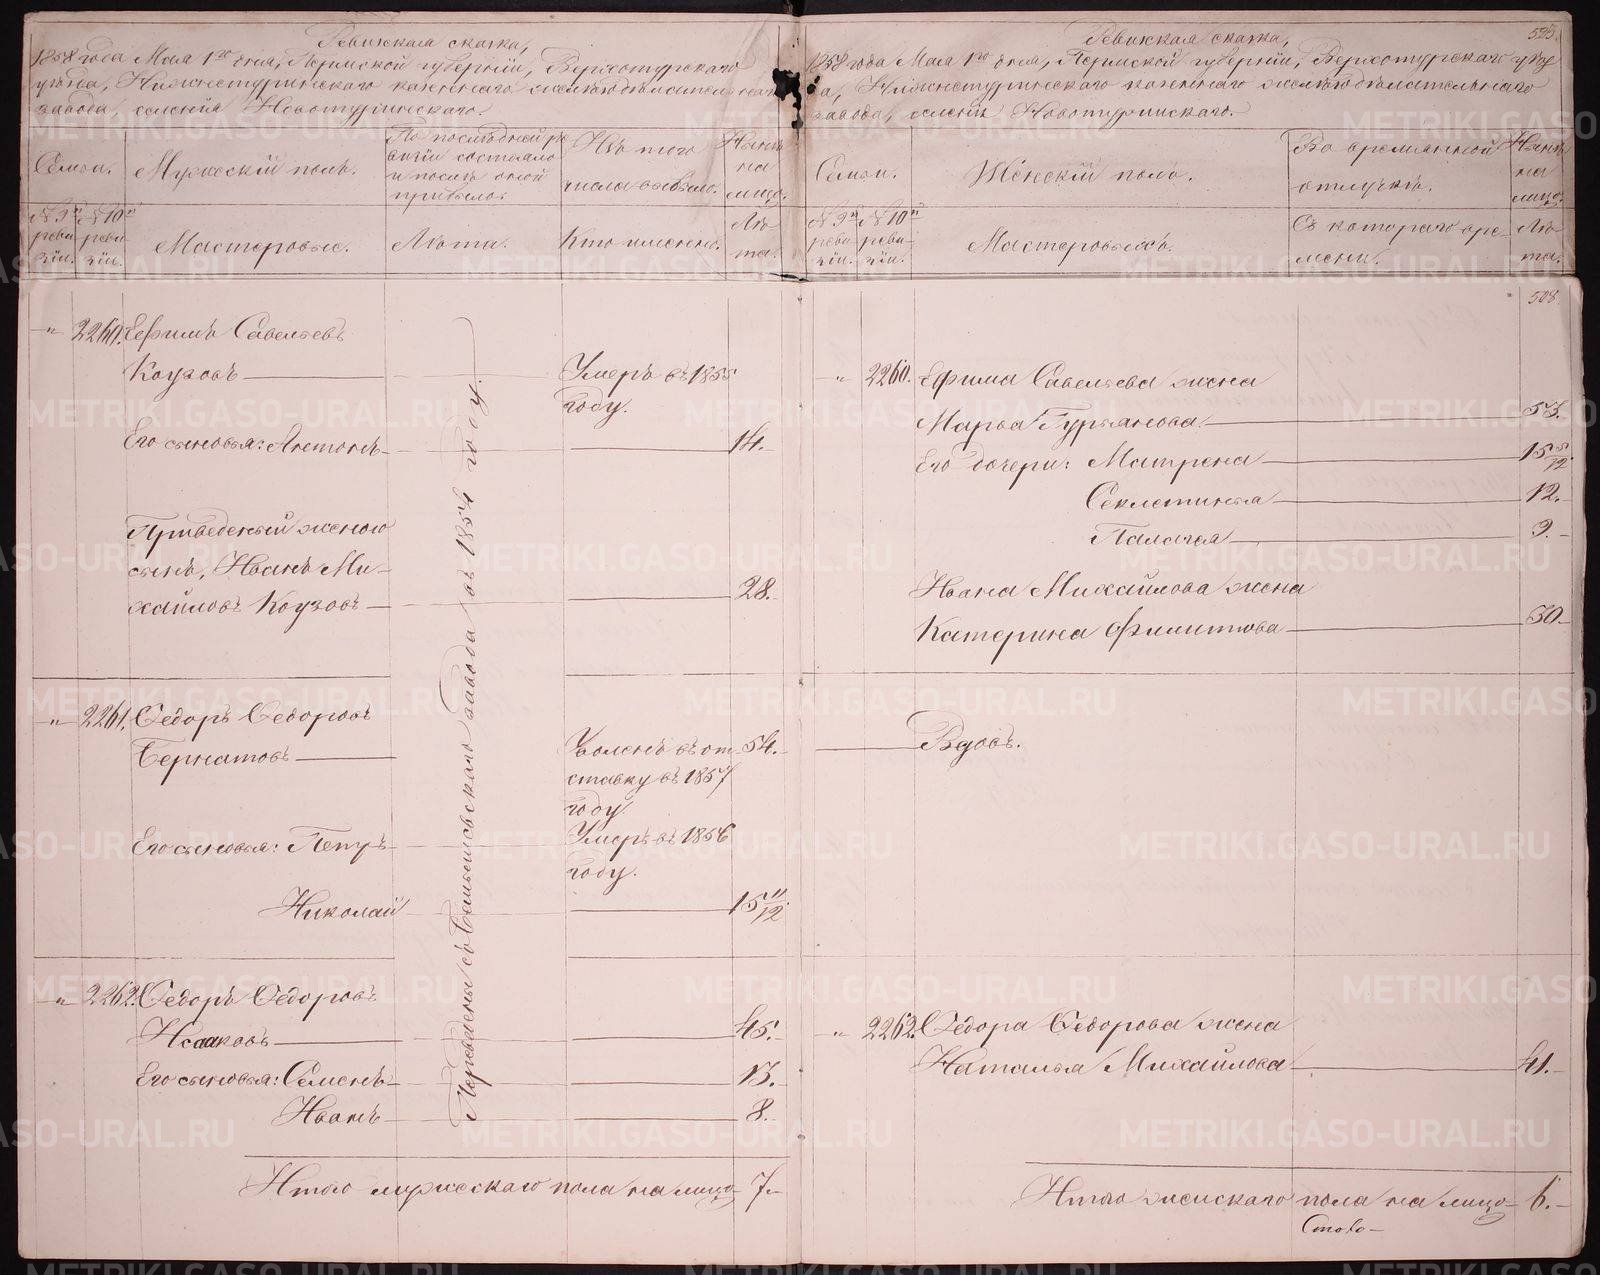 Ревижская сказка,
1858 года Мая 1го дня, Пермской губернiи, Верхотурскаго
уѣзда, Нижнетуринскаго казеннаго желѣзодѣлательнаго
завода, селенiя Новотуринскаго.
Семьи.
Мужескiй полъ.
По послѣдней ре
визiи состояло
и послѣ оной
прибыло
Изъ того
числа выбыло.
Нынѣ
на
лицо.
№ 9й
реви
зiи.
№ 10й
реви
зiи.
Мастеровые.
Лѣта.
Кто именно.
Лѣ
та.
" 2260. Ефимъ Савельевъ
Коузовъ
Умеръ въ 1855
году.
Его сыновья: Антонъ 14.
Приведеный женою
сынъ, Иванъ Ми-
хайловъ Коузовъ 28.
" 2261. Ѳедоръ Ѳедоровъ
Бернатовъ
Уволенъ въ от 54.
ставку въ 1857
году.
Его сыновья: Петръ
Умеръ въ 1856
году.
Николай 15 11/12.
" 2262. Ѳедоръ Ѳедоровъ
Исааковъ 45.
Его сыновья: Семенъ 13.
Иванъ 8.
Переведены съ завода въ 1854 году.
Итого мужескаго пола на лицо 7.
525.
Ревижская сказка,
1858 года Мая 1го дня, Пермской губернiи, Верхотурскаго уѣз
да, Нижнетуринскаго казеннаго желѣзодѣлательнаго
завода, селенiя Новотуринскаго.
Семьи.
Женскiй полъ.
Во временной
отлучкѣ.
Нынѣ
на
лицо.
№ 9й
реви
зiи.
№ 10й
реви-
зiи.
Мастеровыхъ.
Съ котораго вре-
мени.
Лѣ
та.
508.
" 2260. Ефима Савельева жена
Марья Гурьянова 53.
Его дочери: Матрена 15 5/12.
Секлетинья 12.
Палагея 9.
Ивана Михайлова жена
Катерина Филиппова 30.
Вдовъ.
" 2262. Ѳедора Ѳедорова жена
Наталья Михайлова 41.
Итого женскаго пола на лицо 6.
METRIKI.GASO-URAL.RU